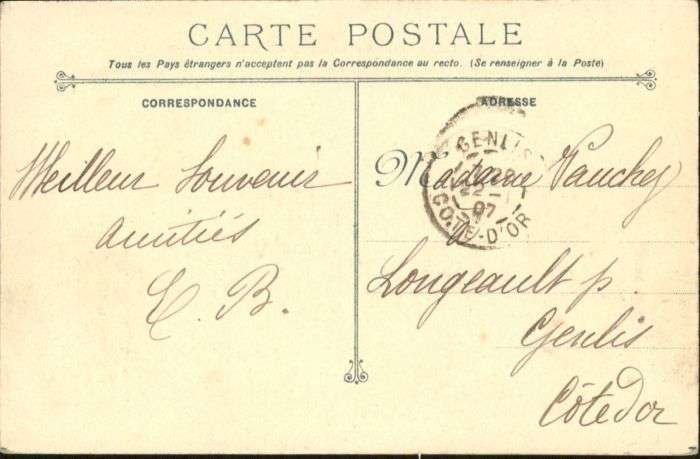 CARTE POSTALE
Tous les Pays étrangers n'acceptent pas la Correspondance au recto. (Se renseigner à la Poste)
CORRESPONDANCE
Meilleur Souvenir
amitiés
E. B.
ADRESSE
GENLIS
22
07
COTE-D'OR
Madame Vauchey
Longeault p.
Genlis
Côte d'or